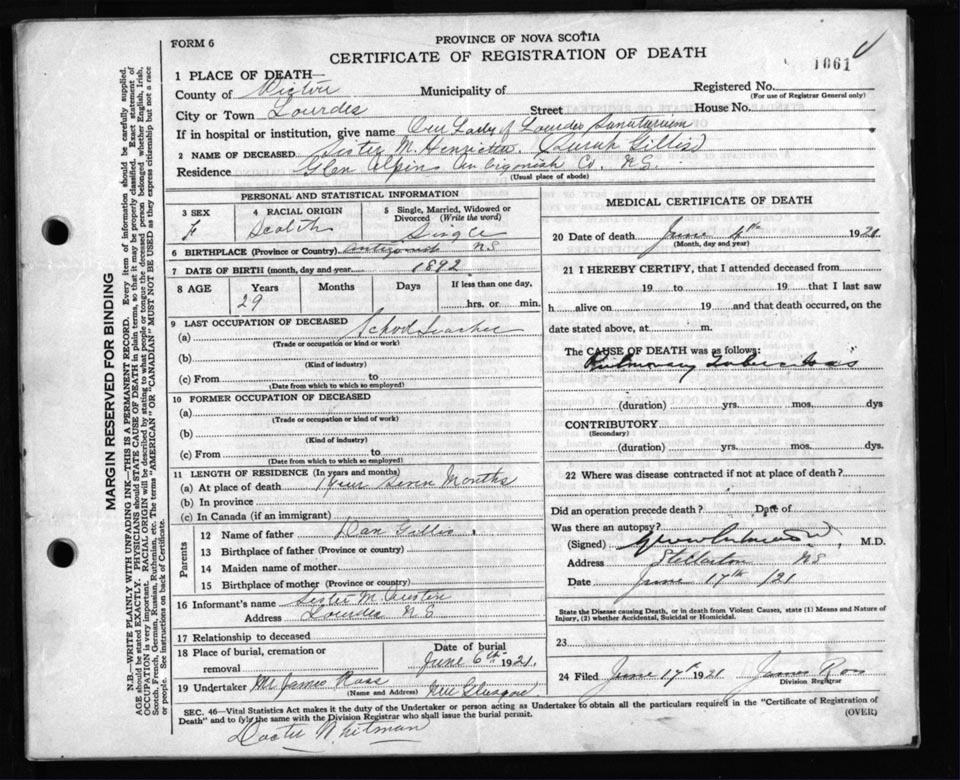 FORM 6
PROVINCE OF NOVA SCOTIA
CERTIFICATE OF REGISTRATION OF DEATH
1061
1 PLACE OF DEATH—
County of Pictou Municipality of Registered No.
(For use of Registrar General only)
City or Town Lourdes Street House No.
If in hospital or institution, give name Our Lady of Lourdes Sanatorium
2 NAME OF DECEASED Sister M. Henrietta (Sarah Gillis)
Residence Glen Alpine Antigonish Co. N.S.
(Usual place of abode)
PERSONAL AND STATISTICAL INFORMATION
3 SEX 4 RACIAL ORIGIN 5 Single, Married, Widowed or Divorced (Write the word)
F Scotch Single
6 BIRTHPLACE (Province or Country) Antigonish N.S.
7 DATE OF BIRTH (month, day and year) 1892
8 AGE Years Months Days If less than one day,
29 hrs. or min.
9 LAST OCCUPATION OF DECEASED
(a) School Teacher
(Trade or occupation or kind or work)
(b)
(Kind of industry)
(c) From to
(Date from which to which so employed)
10 FORMER OCCUPATION OF DECEASED
(a)
(Trade or occupation or kind of work)
(b)
(Kind of industry)
(c) From to
(Date from which to which so employed)
11 LENGTH OF RESIDENCE (In years and months)
(a) At place of death 1 Year Seven Months
(b) In province
(c) In Canada (if an immigrant)
Parents
12 Name of father Dan Gillis
13 Birthplace of father (Province or country)
14 Maiden name of mother
15 Birthplace of mother (Province or country)
16 Informant's name Sister M. Austin
Address Lourdes N.S.
17 Relationship to deceased
18 Place of burial, cremation or removal Date of burial
June 6th 1921.
19 Undertaker Mr James Ross New Glasgow
(Name and Address)
MEDICAL CERTIFICATE OF DEATH
20 Date of death June 4th 1921
(Month, day and year)
21 I HEREBY CERTIFY, that I attended deceased from
19 to 19 that I last saw
h alive on 19 and that death occurred, on the
date stated above, at m.
The CAUSE OF DEATH was as follows:
Pulmonary Tuberculosis
(duration) yrs. mos. dys
CONTRIBUTORY
(Secondary)
(duration) yrs. mos. dys.
22 Where was disease contracted if not at place of death?
Did an operation precede death? Date of
Was there an autopsy?
(Signed) M.D.
Address Stellarton NS
Date June 17th /21
State the Disease causing Death, or in death from Violent Causes, state (1) Means and Nature of Injury, (2) whether Accidental, Suicidal or Homicidal.
23
24 Filed June 17th 1921 James Ross
Division Registrar
SEC. 46—Vital Statistics Act makes it the duty of the Undertaker or person acting as Undertaker to obtain all the particulars required in the "Certificate of Registration of Death" and to file the same with the Division Registrar who shall issue the burial permit.
(OVER)
Doctor Whitman
MARGIN RESERVED FOR BINDING
N.B.—WRITE PLAINLY WITH UNFADING INK—THIS IS A PERMANENT RECORD. Every item of information should be carefully supplied. AGE should be stated EXACTLY. PHYSICIANS should STATE CAUSE OF DEATH in plain terms, so that it may be properly classified. Exact statement of OCCUPATION is very important. RACIAL ORIGIN will be described by stating to what people or tongue the deceased person belonged whether English, Irish, Scotch, French, German, Russian, Ruthenian, etc. The terms "AMERICAN" OR "CANADIAN" MUST NOT BE USED as they express citizenship but not a race or people. See instructions on back of Certificate.